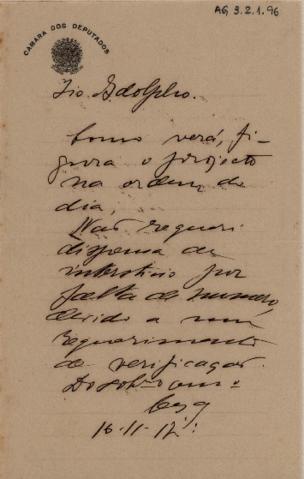 AG, 3.2.1.96
CAMARA DOS DEPUTADOS
Tio Adolpho.
Como verá, fi-
gura o projecto
na ordem do
dia.
Não requeri
dispensa de
intersticio por
falta de numero,
devido a um
requerimento
de verificação.
Do sobr.º am.º
16-11-12